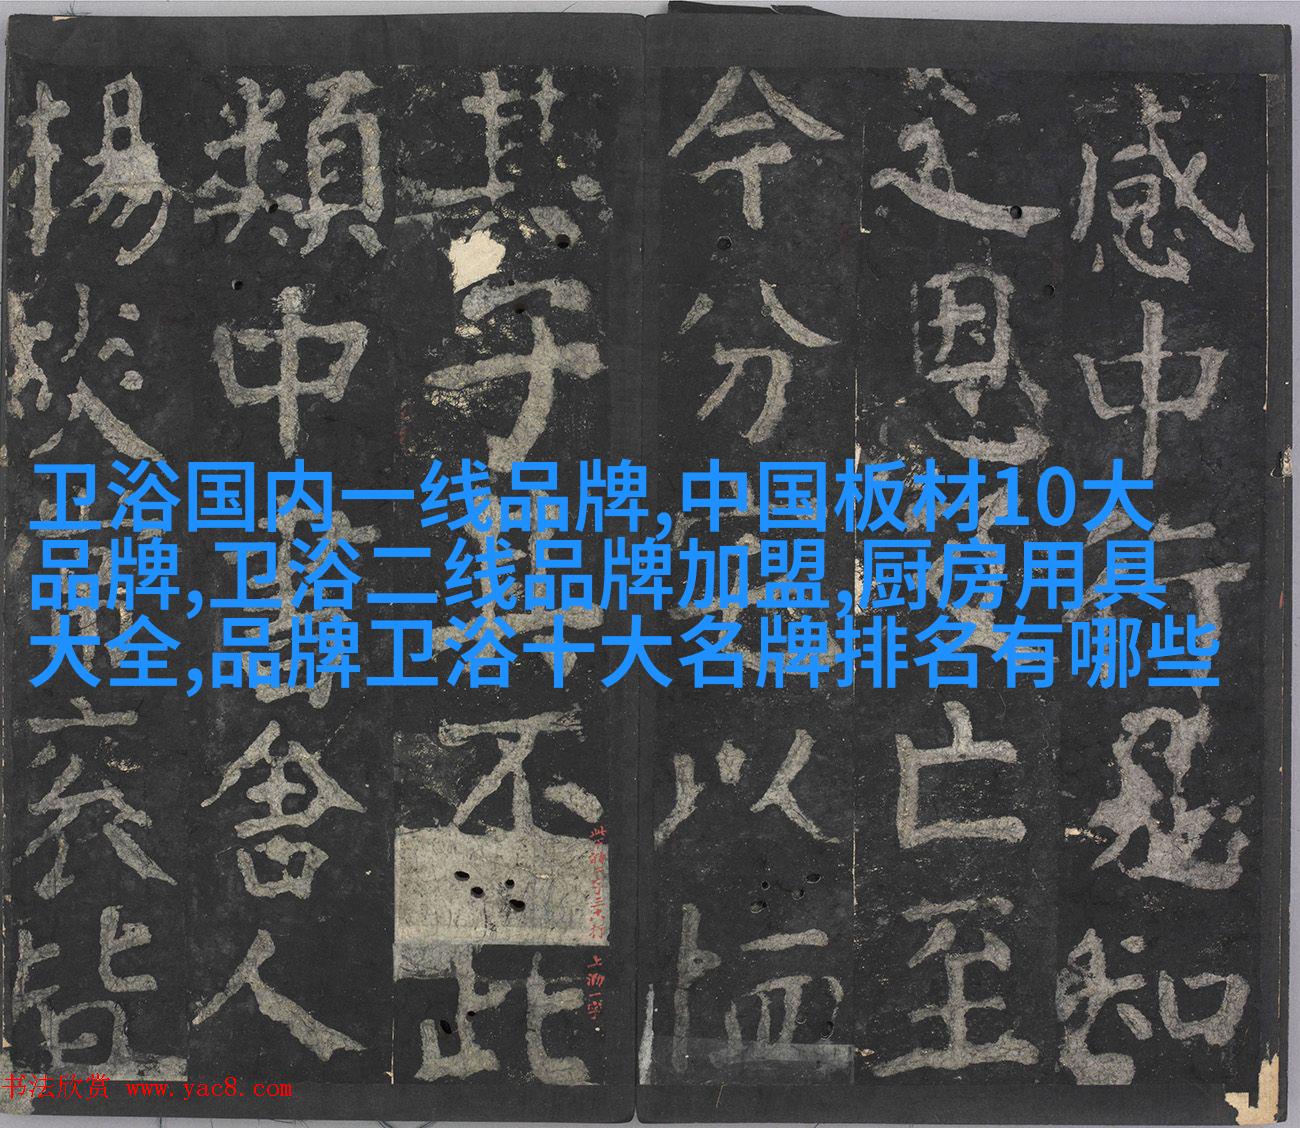 感中行知
之恩亡至
今分以恤
其子不此
類中書舍人
揚皆
卫浴国内一线品牌,中国板材10大
品牌,卫浴二线品牌加盟,厨房用具
大全,品牌卫浴十大名牌排名有哪些
书法欣赏 www.yac8.com